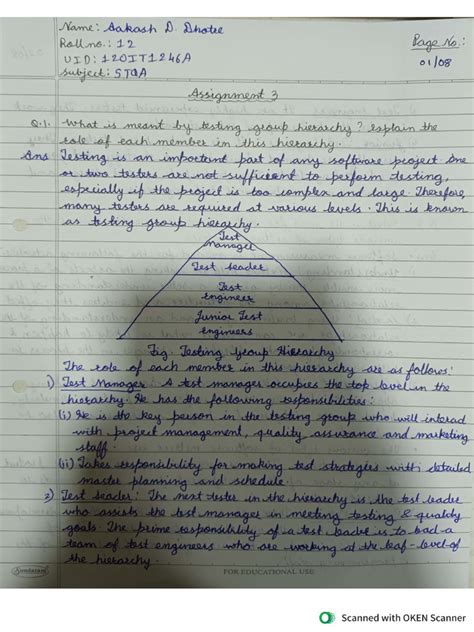 Name: Aakash D. Dhotre
Roll no.: 12
UID: 120IT1246A
Subject: STQA
Page No.:
01/08
Assignment 3
Q.1. What is meant by testing group hierarchy? explain the
role of each member in this hierarchy.
Ans Testing is an important part of any software project. One
or two testers are not sufficient to perform testing,
especially if the project is too complex and large. Therefore,
many testers are required at various levels. This is known
as testing group hierarchy.
Test
manager
Test leader
Test
Engineer
Junior Test
Engineers
Fig. Testing Group Hierarchy
The role of each member in this hierarchy are as follows:
1) Test Manager: A test manager occupies the top level in the
hierarchy. He has the following responsibilities:
(i) He is the key person in the testing group who will interact
with project management, quality assurance and marketing
staff.
(ii) Takes responsibility for making test strategies with detailed
master planning and schedule.
2) Test leader: The next tester in the hierarchy is the test leader
who assists the test manager in meeting testing & quality
goals. The prime responsibility of a test leader is to lead a
team of test engineers who are working at the leaf-level of
the hierarchy.
Sundaram
FOR EDUCATIONAL USE
Scanned with OKEN Scanner